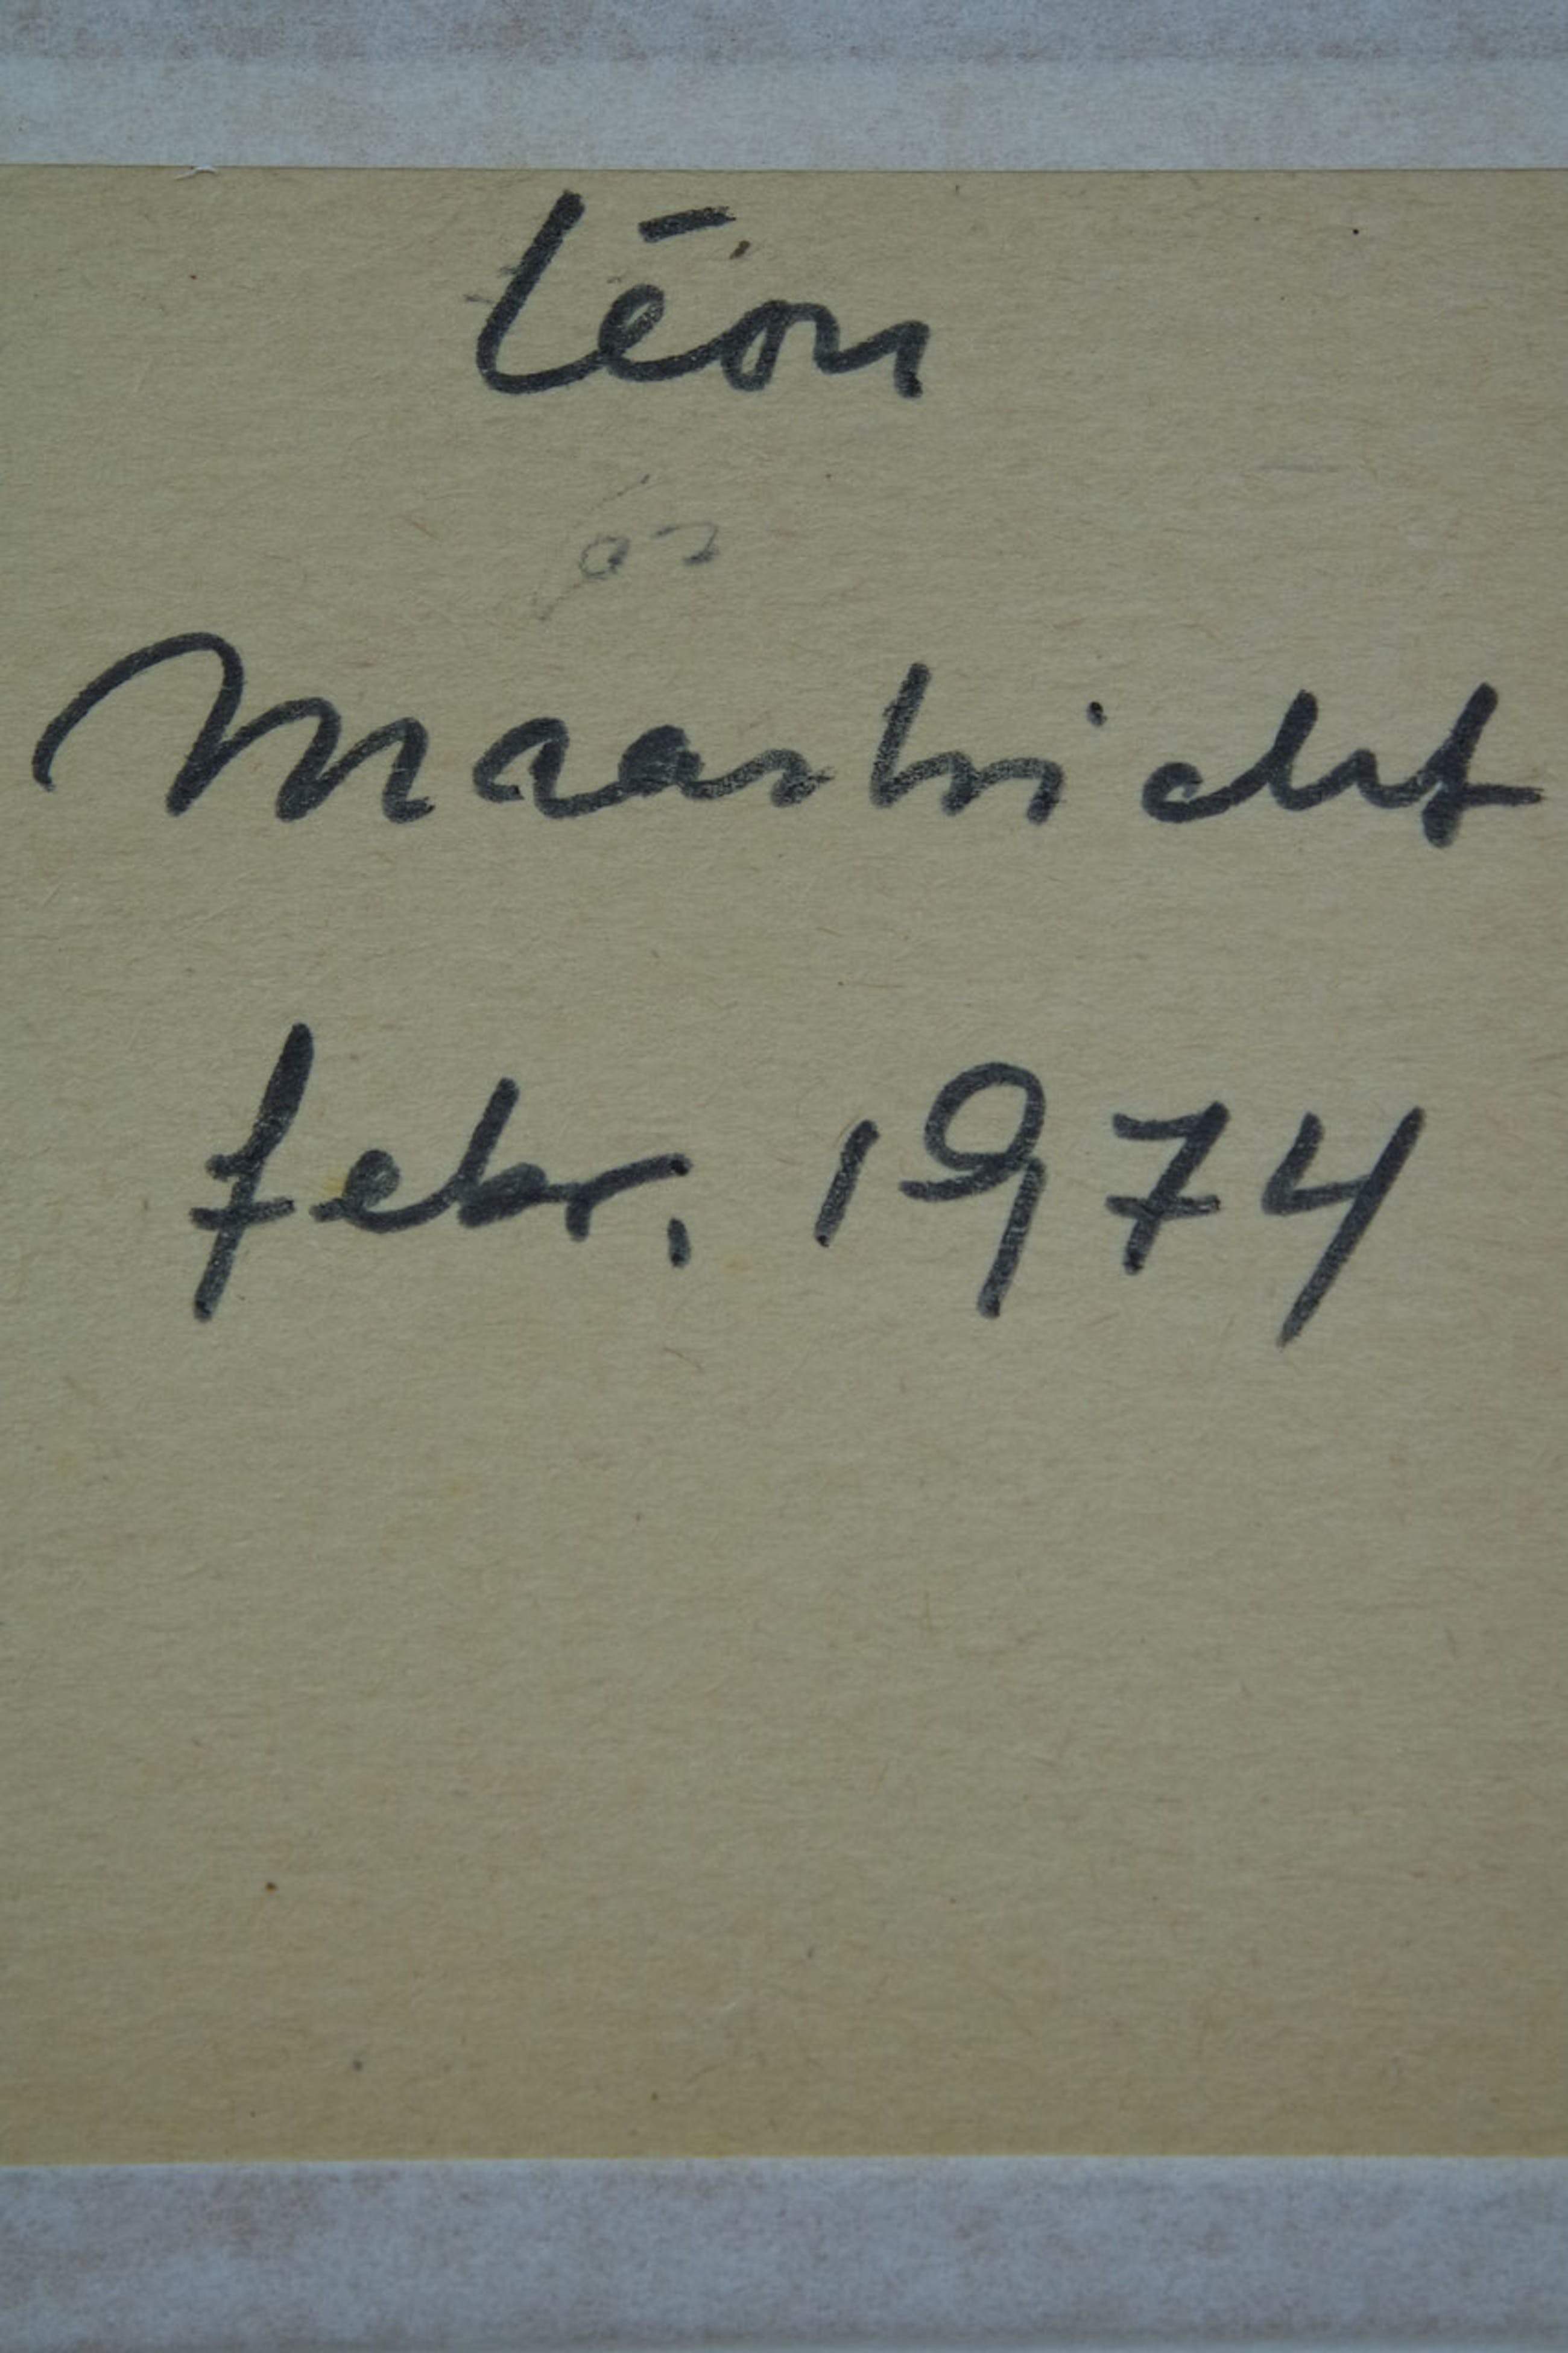 Léon
Maastricht
febr. 1974